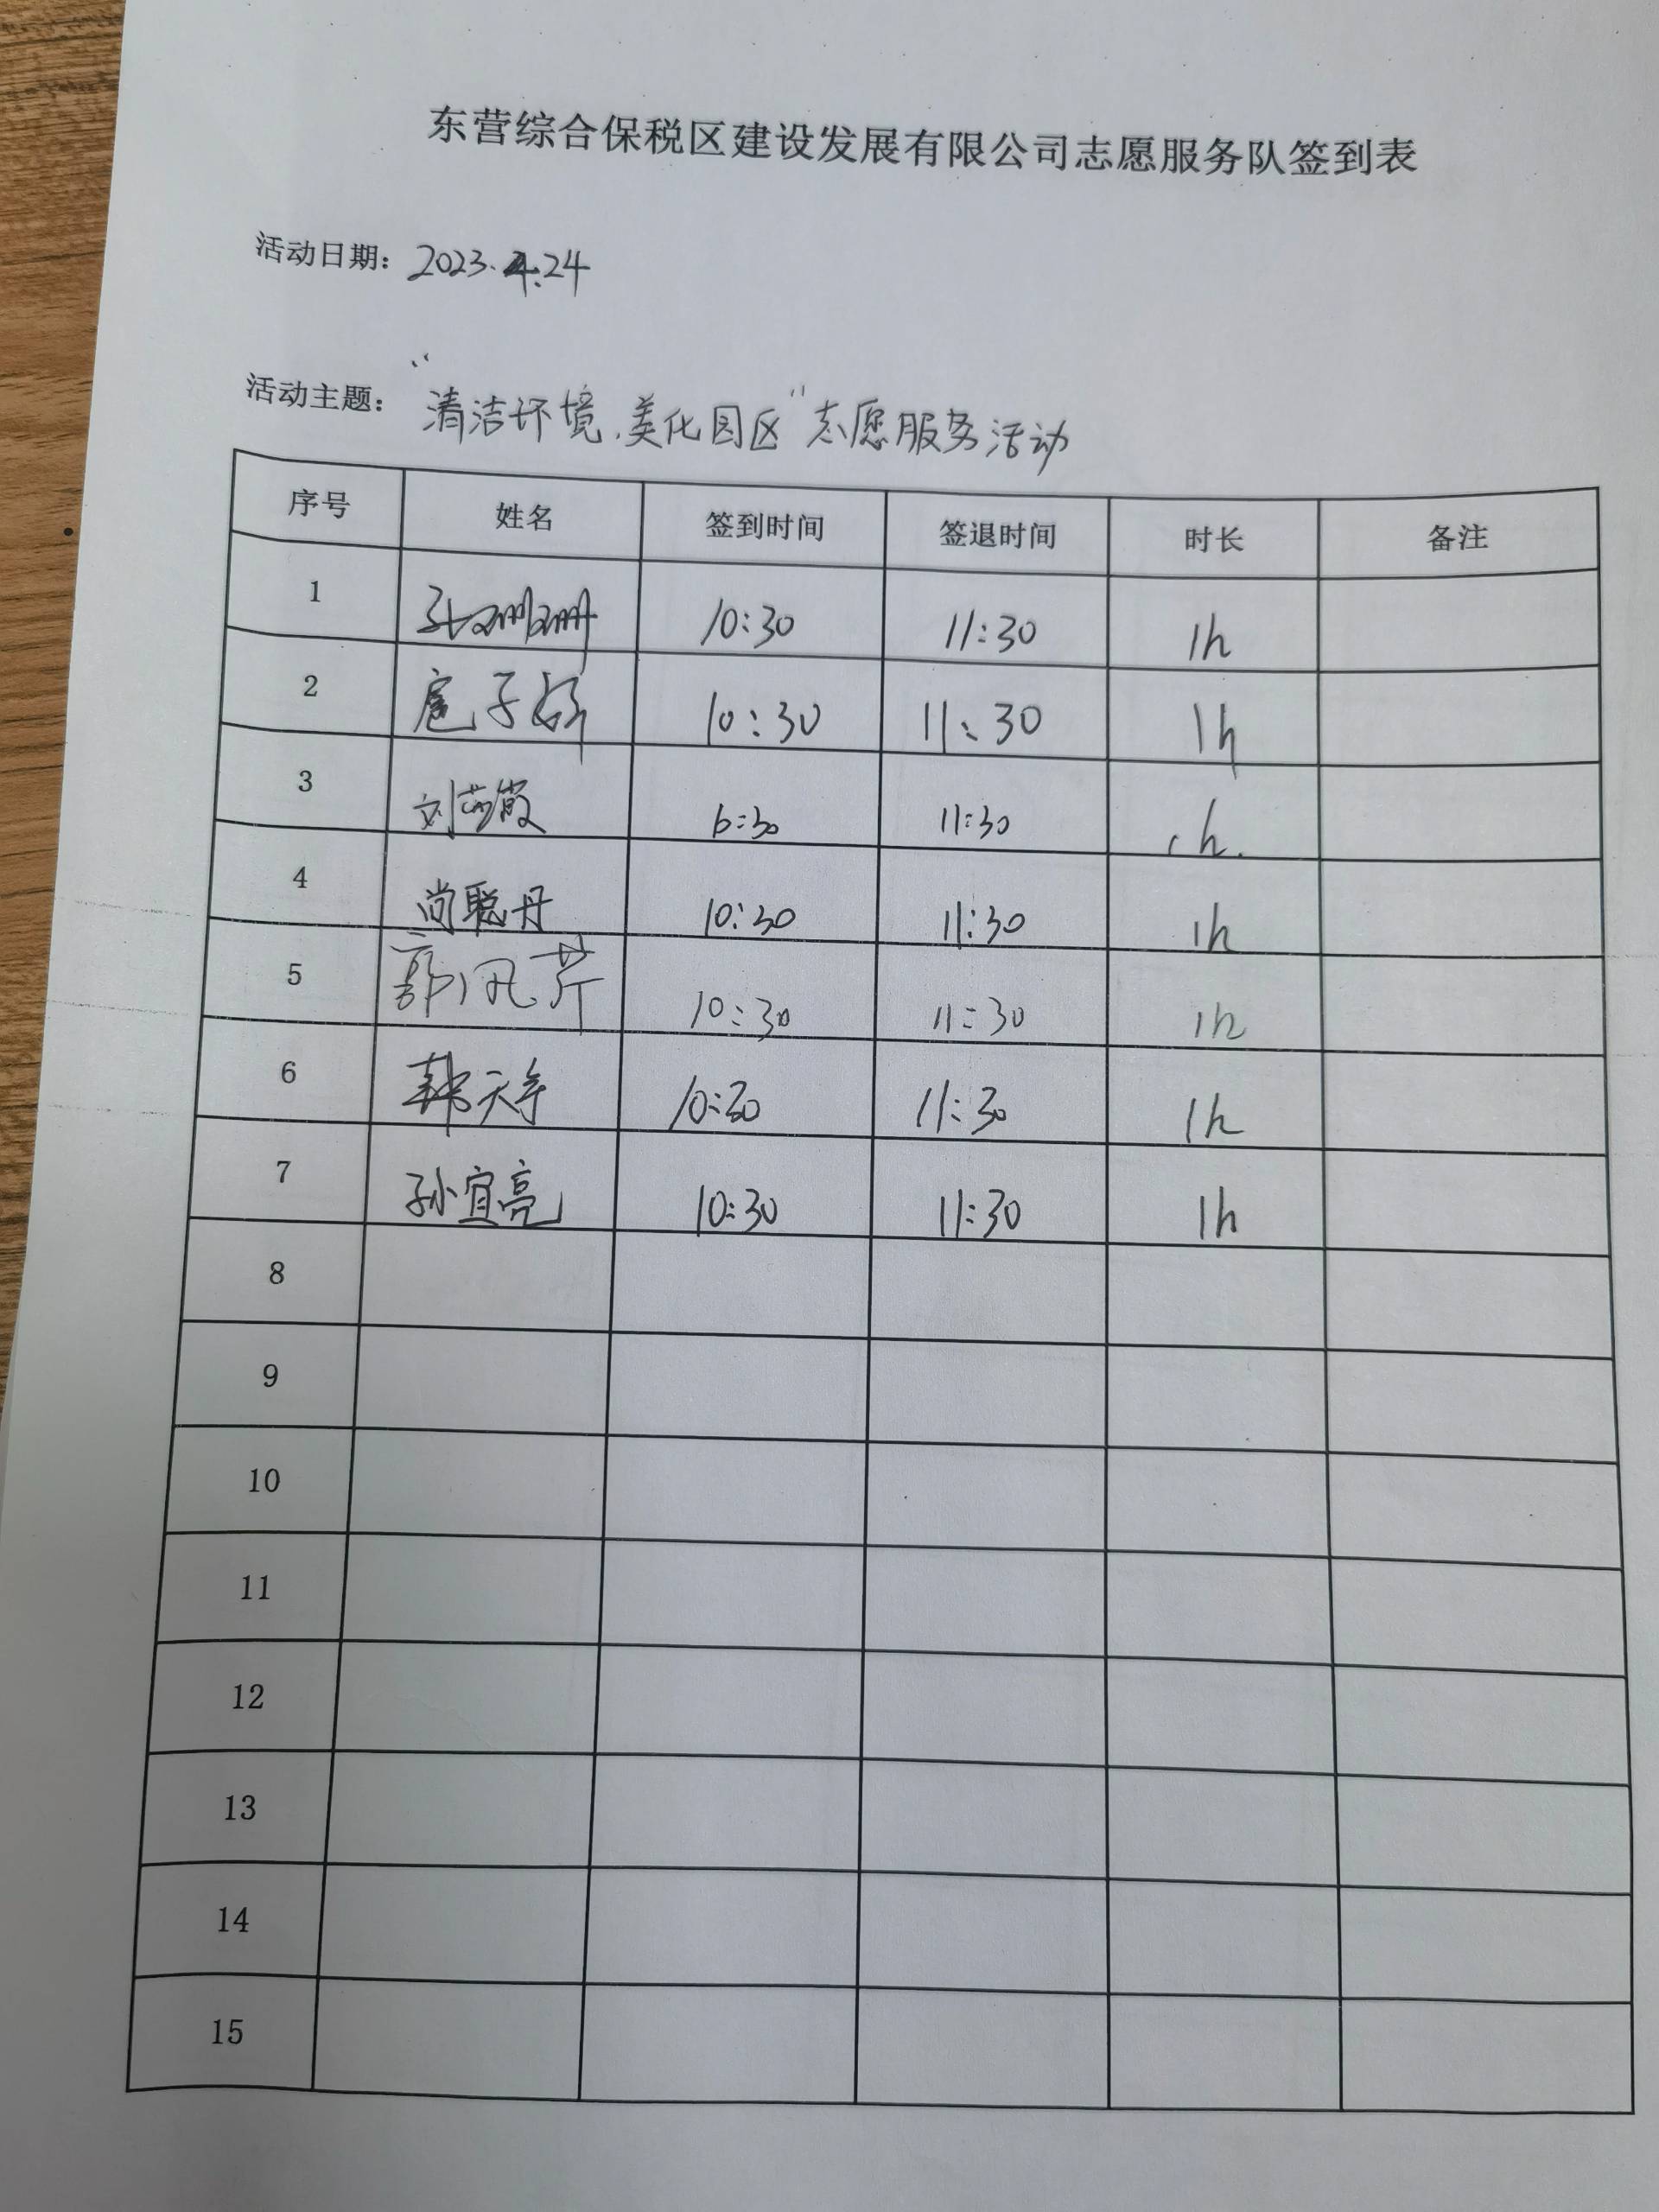 东营综合保税区建设发展有限公司志愿服务队签到表
活动日期: 2023.4.24
活动主题: “清洁环境、美化园区”志愿服务活动
序号 姓名 签到时间 签退时间 时长 备注
1 孙珊珊 10:30 11:30 1h
2 扈子妍 10:30 11:30 1h
3 刘莎 10:30 11:30 1h.
4 尚聪丹 10:30 11:30 1h
5 郭凤芹 10:30 11:30 1h
6 韩天宇 10:30 11:30 1h
7 孙宜亮 10:30 11:30 1h
8
9
10
11
12
13
14
15